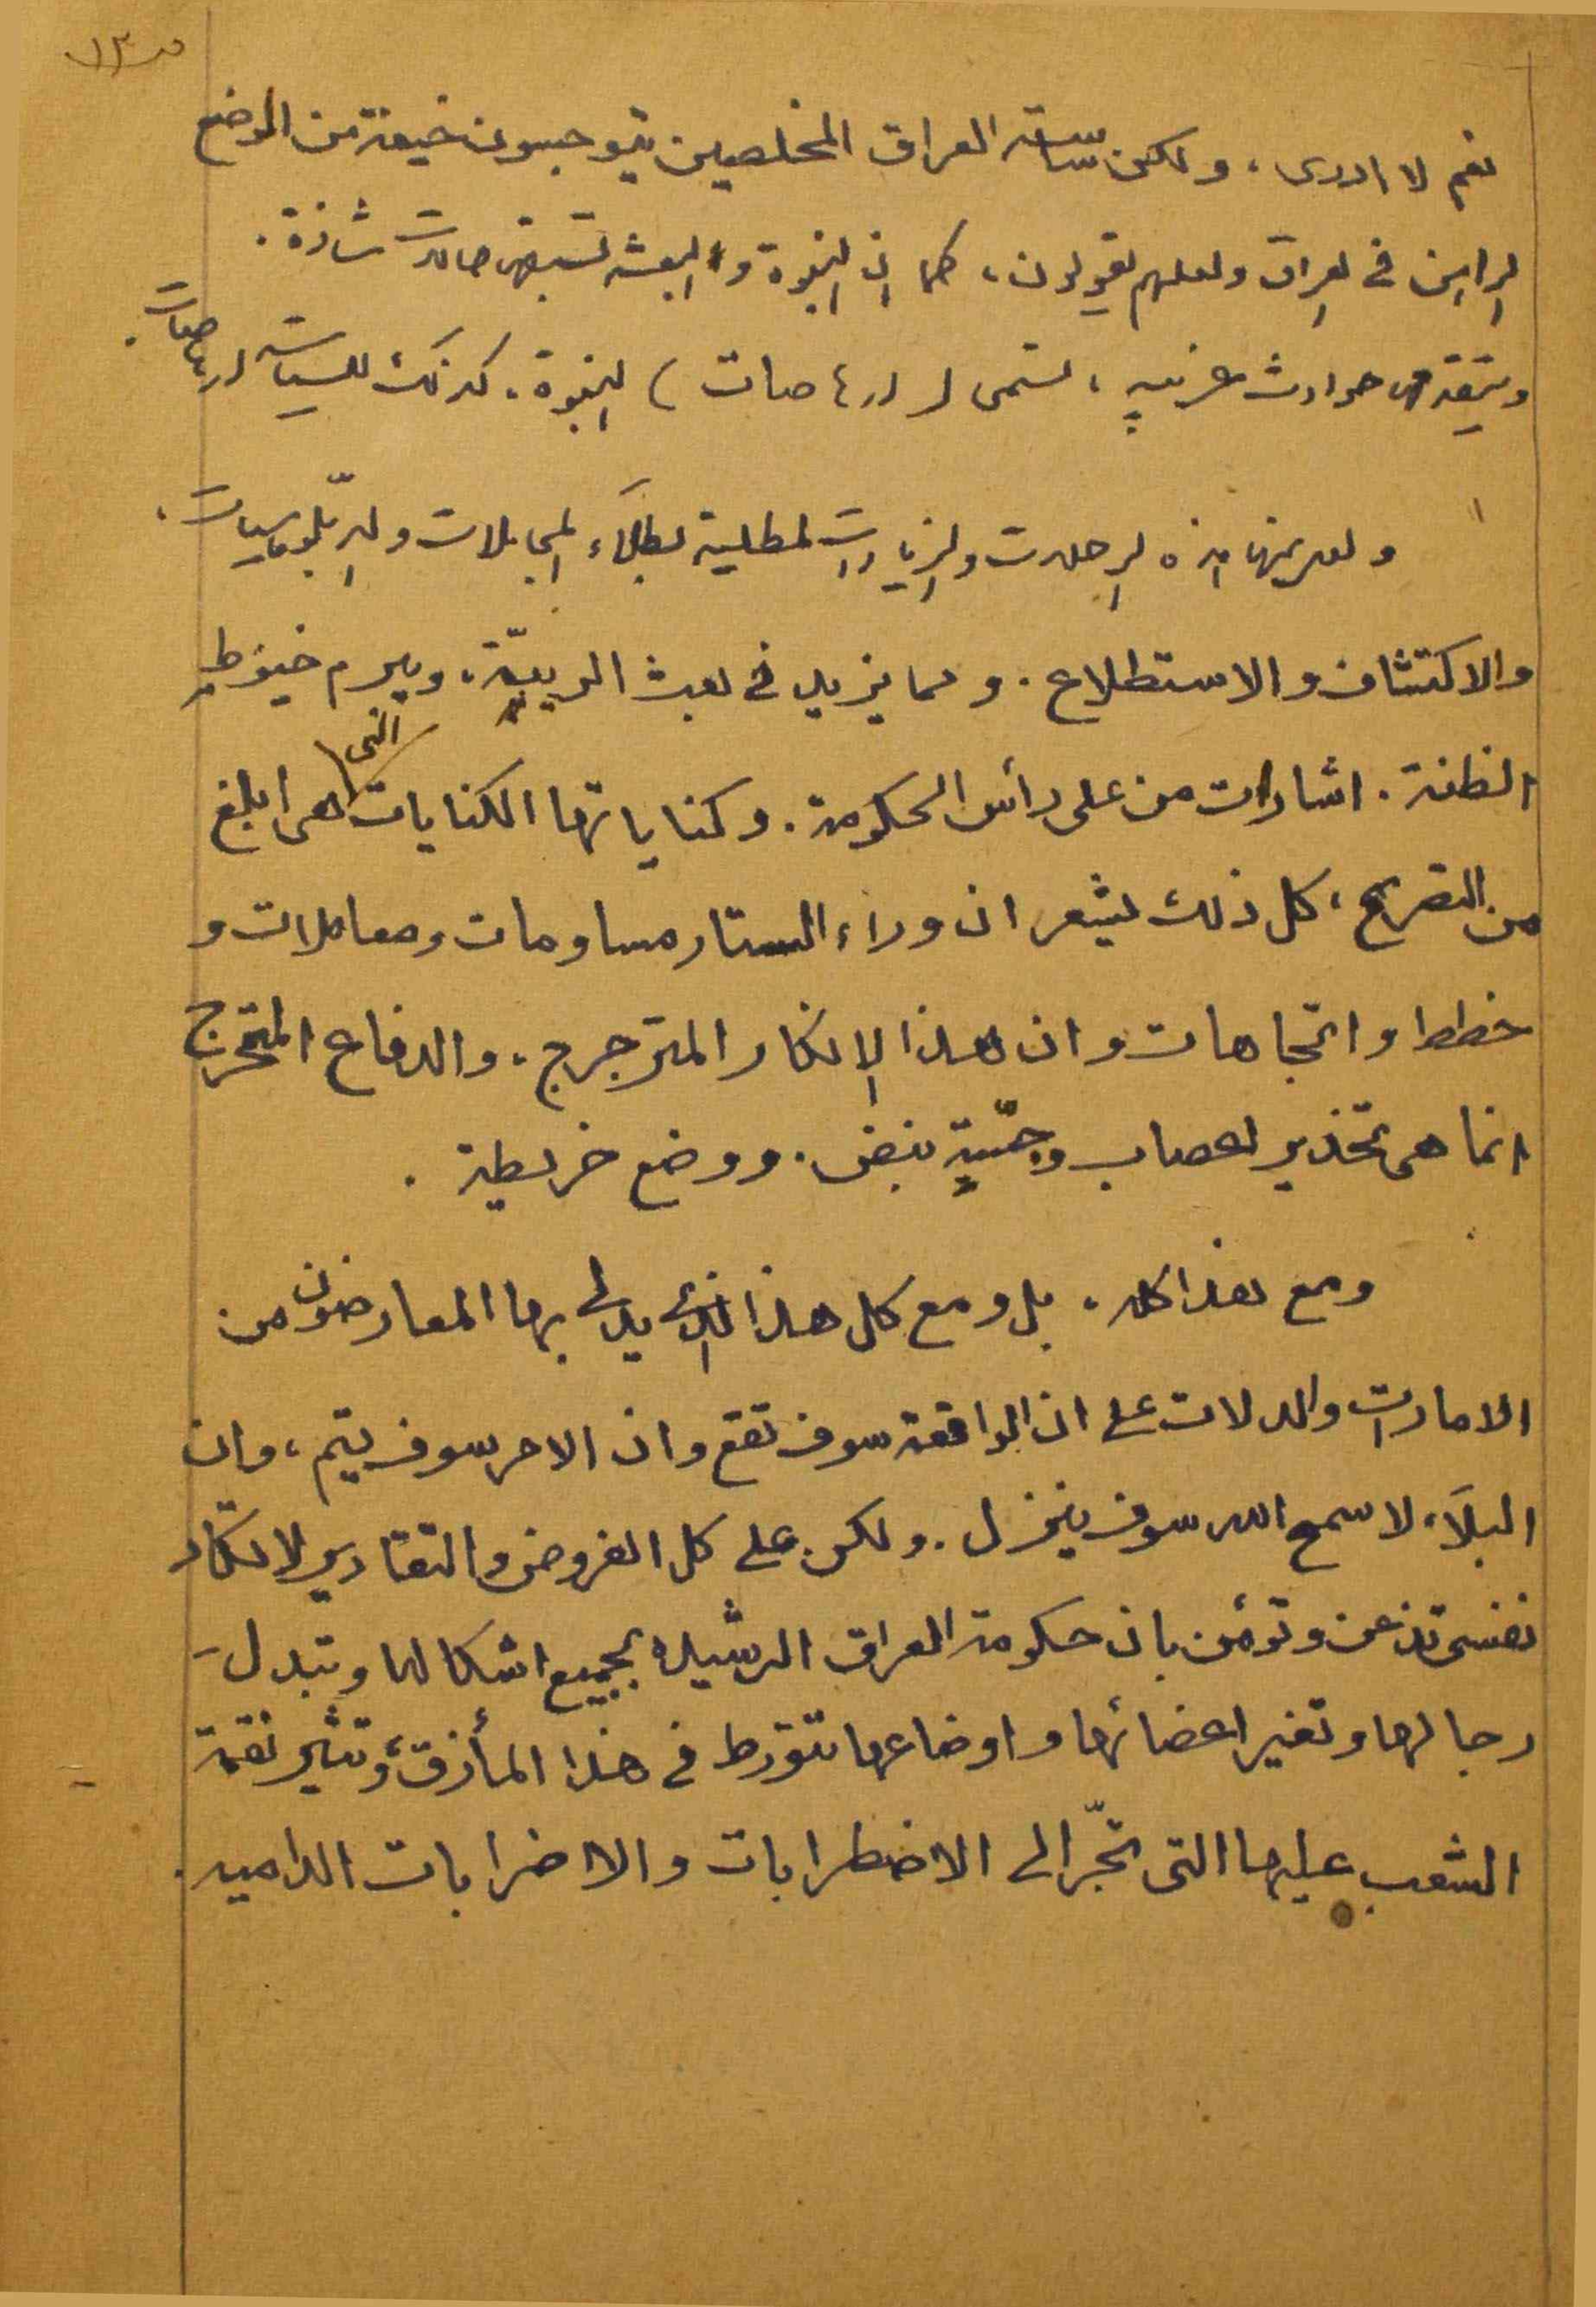 ص ١٣
نعم لا ادرى ، ولكن ساسة العراق المخلصين يتوجسون خيفة من الوضع
الراهن فى العراق ولعلهم يقولون ، كما ان النبوة والبعثة تسبقها حالات شاذة .
وتتقدمها حوادث غريبه ، تسمى ( ارهاصات ) النبوة . كذلك للسياسة ارهاصات .
ولعل منها هذه الرحلات والزيارات المطلية بطلاء المجاملات والدبلوماسيات ،
والاكتشاف والاستطلاع . ومما يزيد فى بعث الريبة ، ويبرم خيوط
الظنة . اشارات من على رأس الحكومة . وكناياتها الكنايات التى هى ابلغ
من التصريح ، كل ذلك يشعر ان وراء الستار مساومات ومعاملات و
خطط واتجاهات وان هذا الانكار المترجرج ، والدفاع المتحرج
انما هى تخذير اعصاب وجسّة نبض . ووضع خريطة .
ومع هذا كله . بل ومع كل هذا الذى يدلى بها المعارضون من
الامارات والدلالات على ان الواقعة سوف تقع وان الامر سوف يتم ، وان
البلاء لا سمح الله سوف ينزل . ولكن على كل الفروض والتقادير لا تكاد
نفسى تذعن وتؤمن بان حكومة العراق الرشيده بجميع اشكالها وتبدل
رجالها وتغير اعضائها واوضاعها تتورط فى هذا المأزق ، وتثير نقمة
الشعب عليها التى تجّر الى الاضطرابات والاضرابات الداميه .